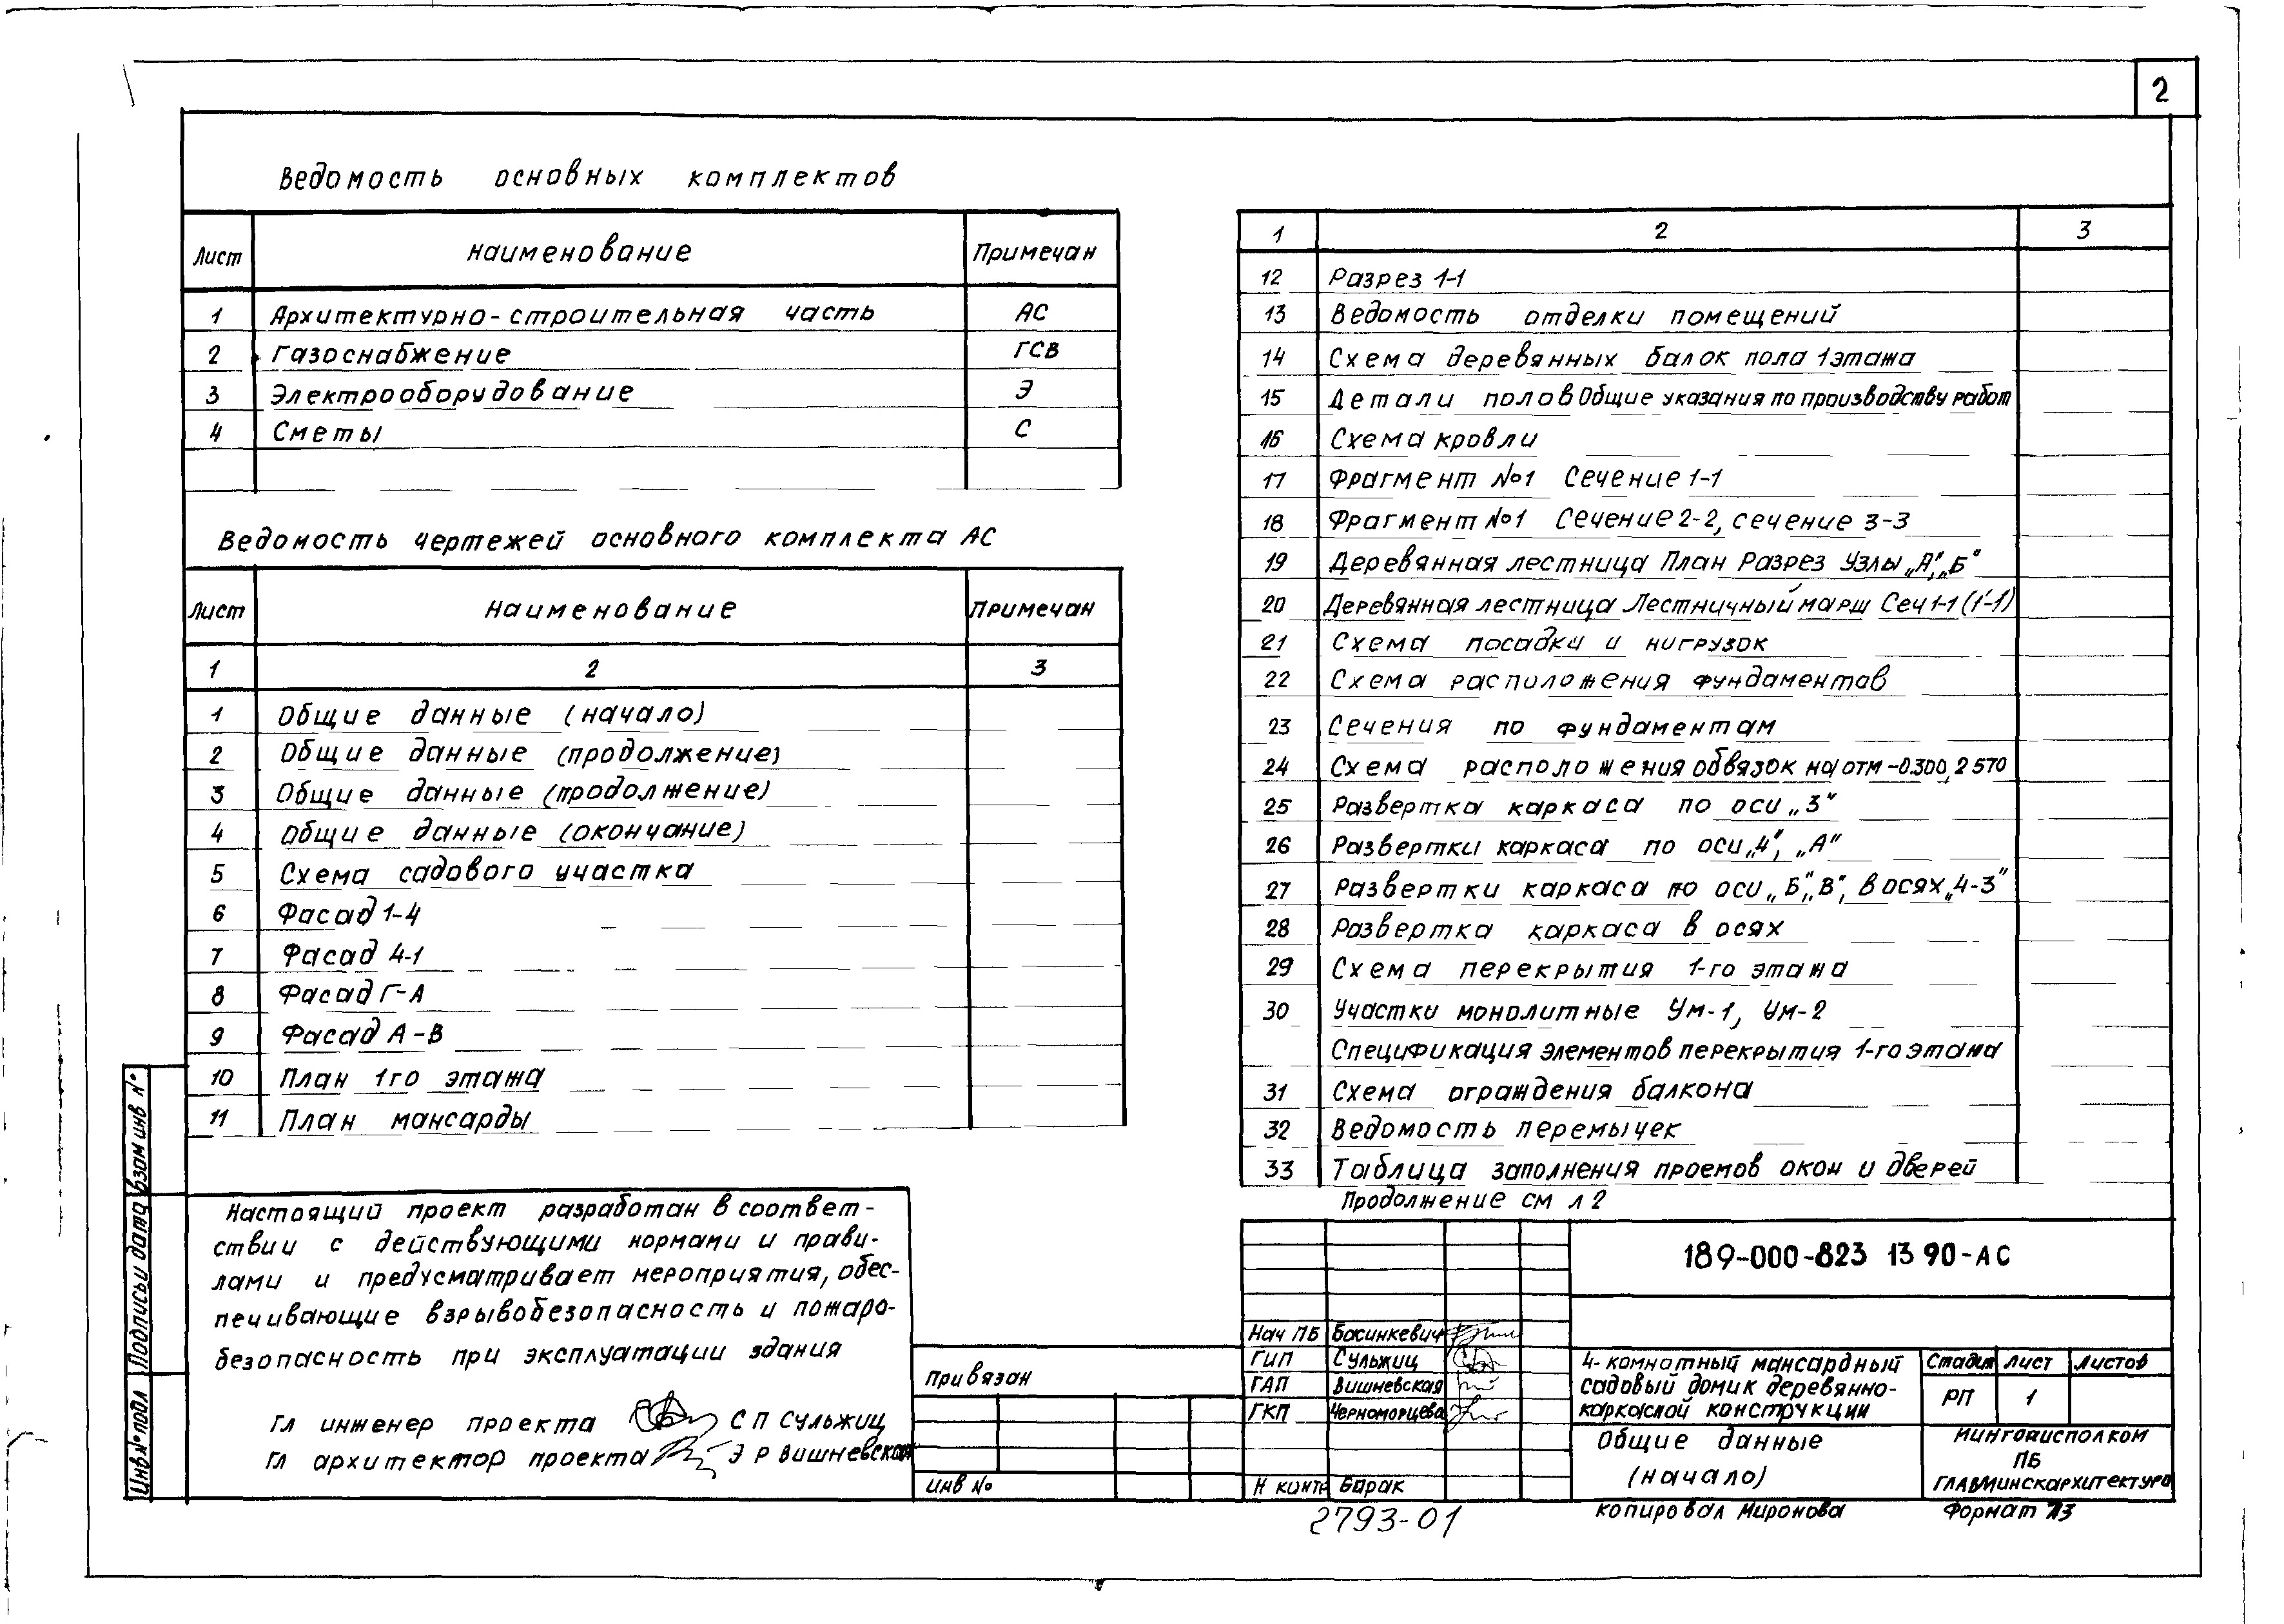 2
Ведомость основных комплектов
Лист Наименование Примечан
1 Архитектурно-строительная часть АС
2 Газоснабжение ГСВ
3 Электрооборудование Э
4 Сметы С
Ведомость чертежей основного комплекта АС
Лист Наименование Примечан
1 2 3
1 Общие данные (начало)
2 Общие данные (продолжение)
3 Общие данные (продолжение)
4 Общие данные (окончание)
5 Схема садового участка
6 Фасад 1-4
7 Фасад 4-1
8 Фасад Г-А
9 Фасад А-В
10 План 1го этажа
11 План мансарды
1 2 3
12 Разрез 1-1
13 Ведомость отделки помещений
14 Схема деревянных балок пола 1 этажа
15 Детали полов Общие указания по производству работ
16 Схема кровли
17 Фрагмент №1 Сечение 1-1
18 Фрагмент №1 Сечение 2-2, сечение 3-3
19 Деревянная лестница План Разрез Узлы „А", „Б"
20 Деревянная лестница Лестничный марш Сеч 1-1 (1'-1)
21 Схема посадки и нагрузок
22 Схема расположения фундаментов
23 Сечения по фундаментам
24 Схема расположения обвязок на отм -0.300, 2 570
25 Развертка каркаса по оси „3"
26 Развертки каркаса по оси „4", „А"
27 Развертки каркаса по оси „Б", „В", в осях „4-3"
28 Развертка каркаса в осях
29 Схема перекрытия 1-го этажа
30 Участки монолитные Ум-1, Ум-2
Спецификация элементов перекрытия 1-го этажа
31 Схема ограждения балкона
32 Ведомость перемычек
33 Таблица заполнения проемов окон и дверей
Продолжение см л 2
Настоящий проект разработан в соответ-
ствии с действующими нормами и прави-
лами и предусматривает мероприятия, обес-
печивающие взрывобезопасность и пожаро-
безопасность при эксплуатации здания
Гл инженер проекта С П Сульжиц
Гл архитектор проекта Э Р Вишневская
Взам инв №
Подпись и дата
Инв № подл
Привязан
Инв №
189-000-823 13 90-АС
Нач ПБ Босинкевич
ГИП Сульжиц
ГАП Вишневская
ГКП Черноморцева
Н контр Барак
4-комнатный мансардный
садовый домик деревянно-
каркасной конструкции
Стадия Лист Листов
РП 1
Общие данные
(начало)
Мингорисполком
ПБ
Главминскархитектура
2793-01
Копировал Миронова
Формат А3